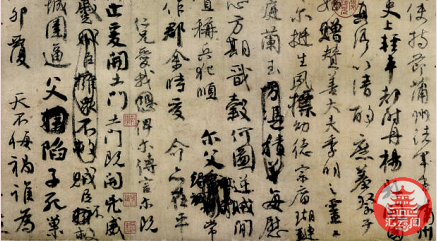 使持節蒲州諸軍
史上輕車都尉丹楊
以清酌庶羞祭于
姪贈贊善大夫季明之靈曰
爾挺生夙標幼德宗廟瑚璉
庭蘭玉方憑積善每慰
心方期戩穀何圖逆賊閒
稱兵犯順 爾父
作郡余時受命亦在平
仁兄愛我俾爾傳言爾既
止爰開土門土門既開凶威
蹙賊臣擁眾不救賊臣不救
城圍逼父陷子死巢
卵覆 天不悔禍誰為